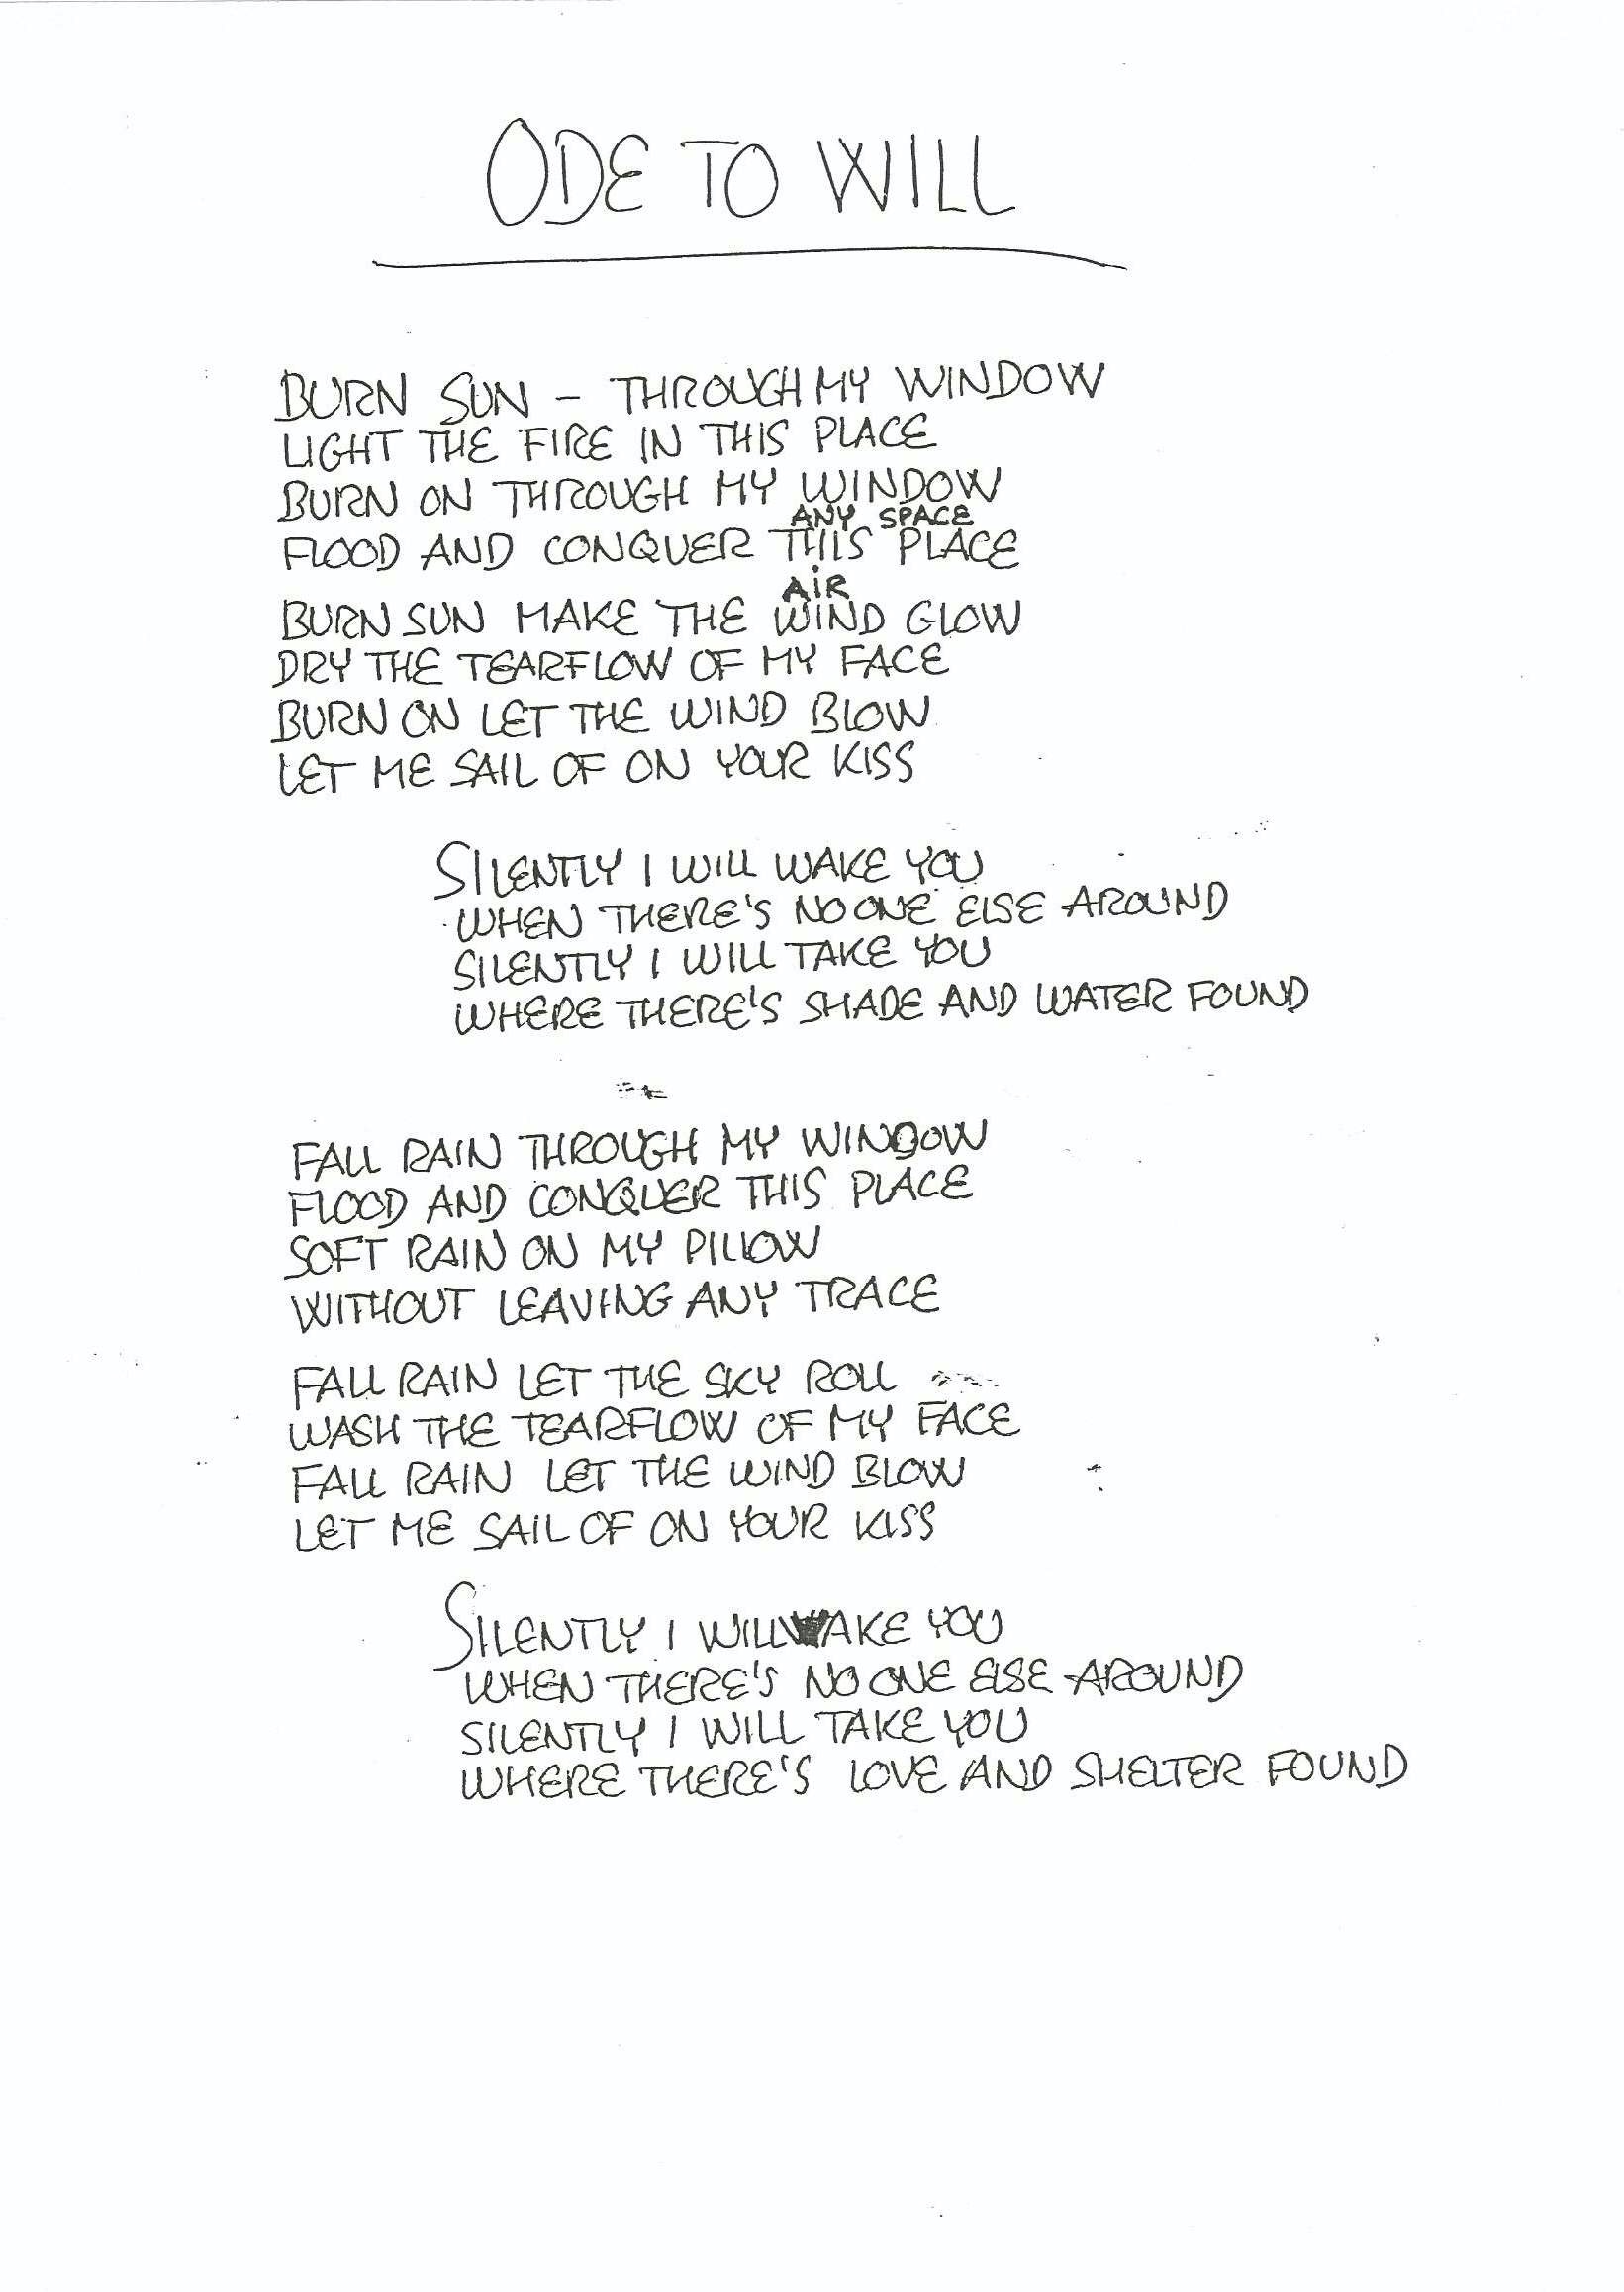 ODE TO WILL
BURN SUN – THROUGH MY WINDOW
LIGHT THE FIRE IN THIS PLACE
BURN ON THROUGH MY WINDOW
ANY SPACE
FLOOD AND CONQUER THIS PLACE
AIR
BURN SUN MAKE THE WIND GLOW
DRY THE TEARFLOW OF MY FACE
BURN ON LET THE WIND BLOW
LET ME SAIL OF ON YOUR KISS
SILENTLY I WILL WAKE YOU
WHEN THERE'S NO ONE ELSE AROUND
SILENTLY I WILL TAKE YOU
WHERE THERE'S SHADE AND WATER FOUND
FALL RAIN THROUGH MY WINDOW
FLOOD AND CONQUER THIS PLACE
SOFT RAIN ON MY PILLOW
WITHOUT LEAVING ANY TRACE
FALL RAIN LET THE SKY ROLL
WASH THE TEARFLOW OF MY FACE
FALL RAIN LET THE WIND BLOW
LET ME SAIL OF ON YOUR KISS
SILENTLY I WILL WAKE YOU
WHEN THERE'S NO ONE ELSE AROUND
SILENTLY I WILL TAKE YOU
WHERE THERE'S LOVE AND SHELTER FOUND